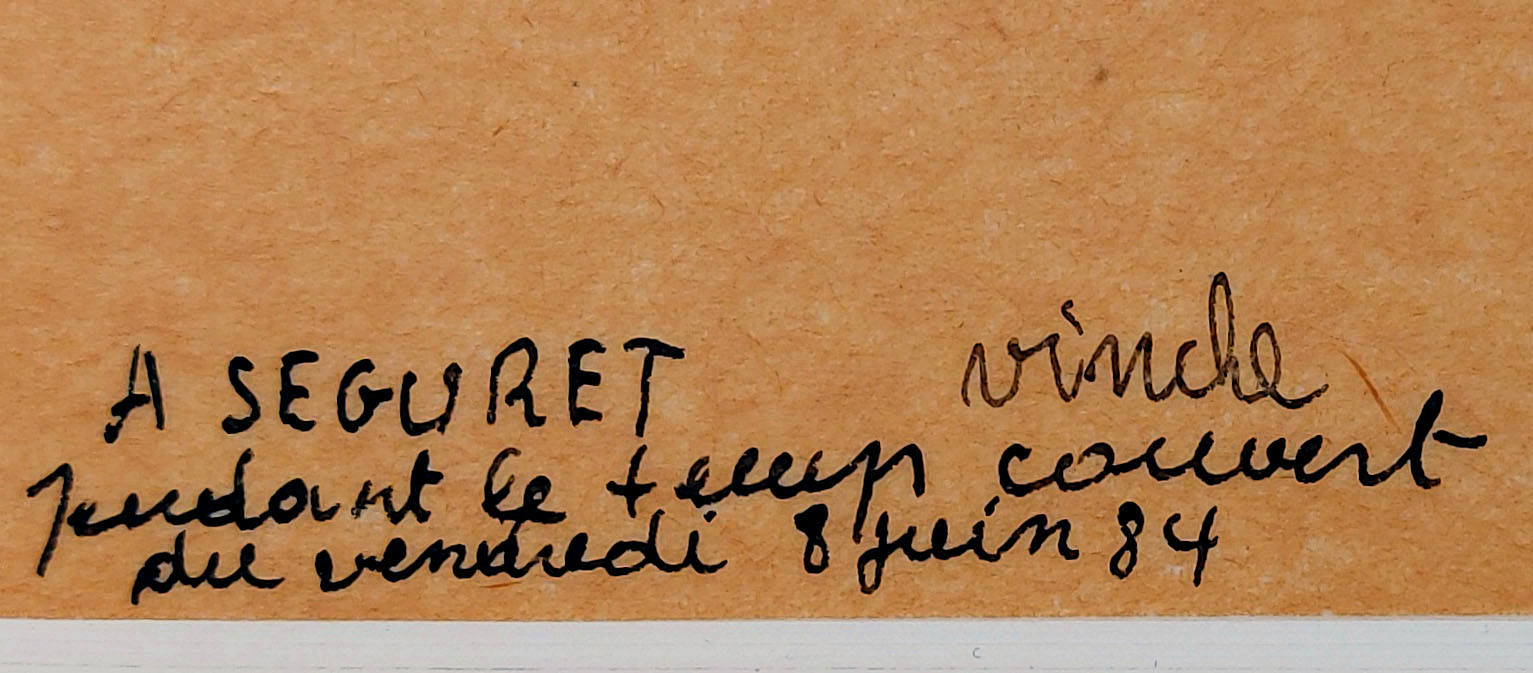 A SEGURET vinche
pendant le temps couvert
du vendredi 8 juin 84